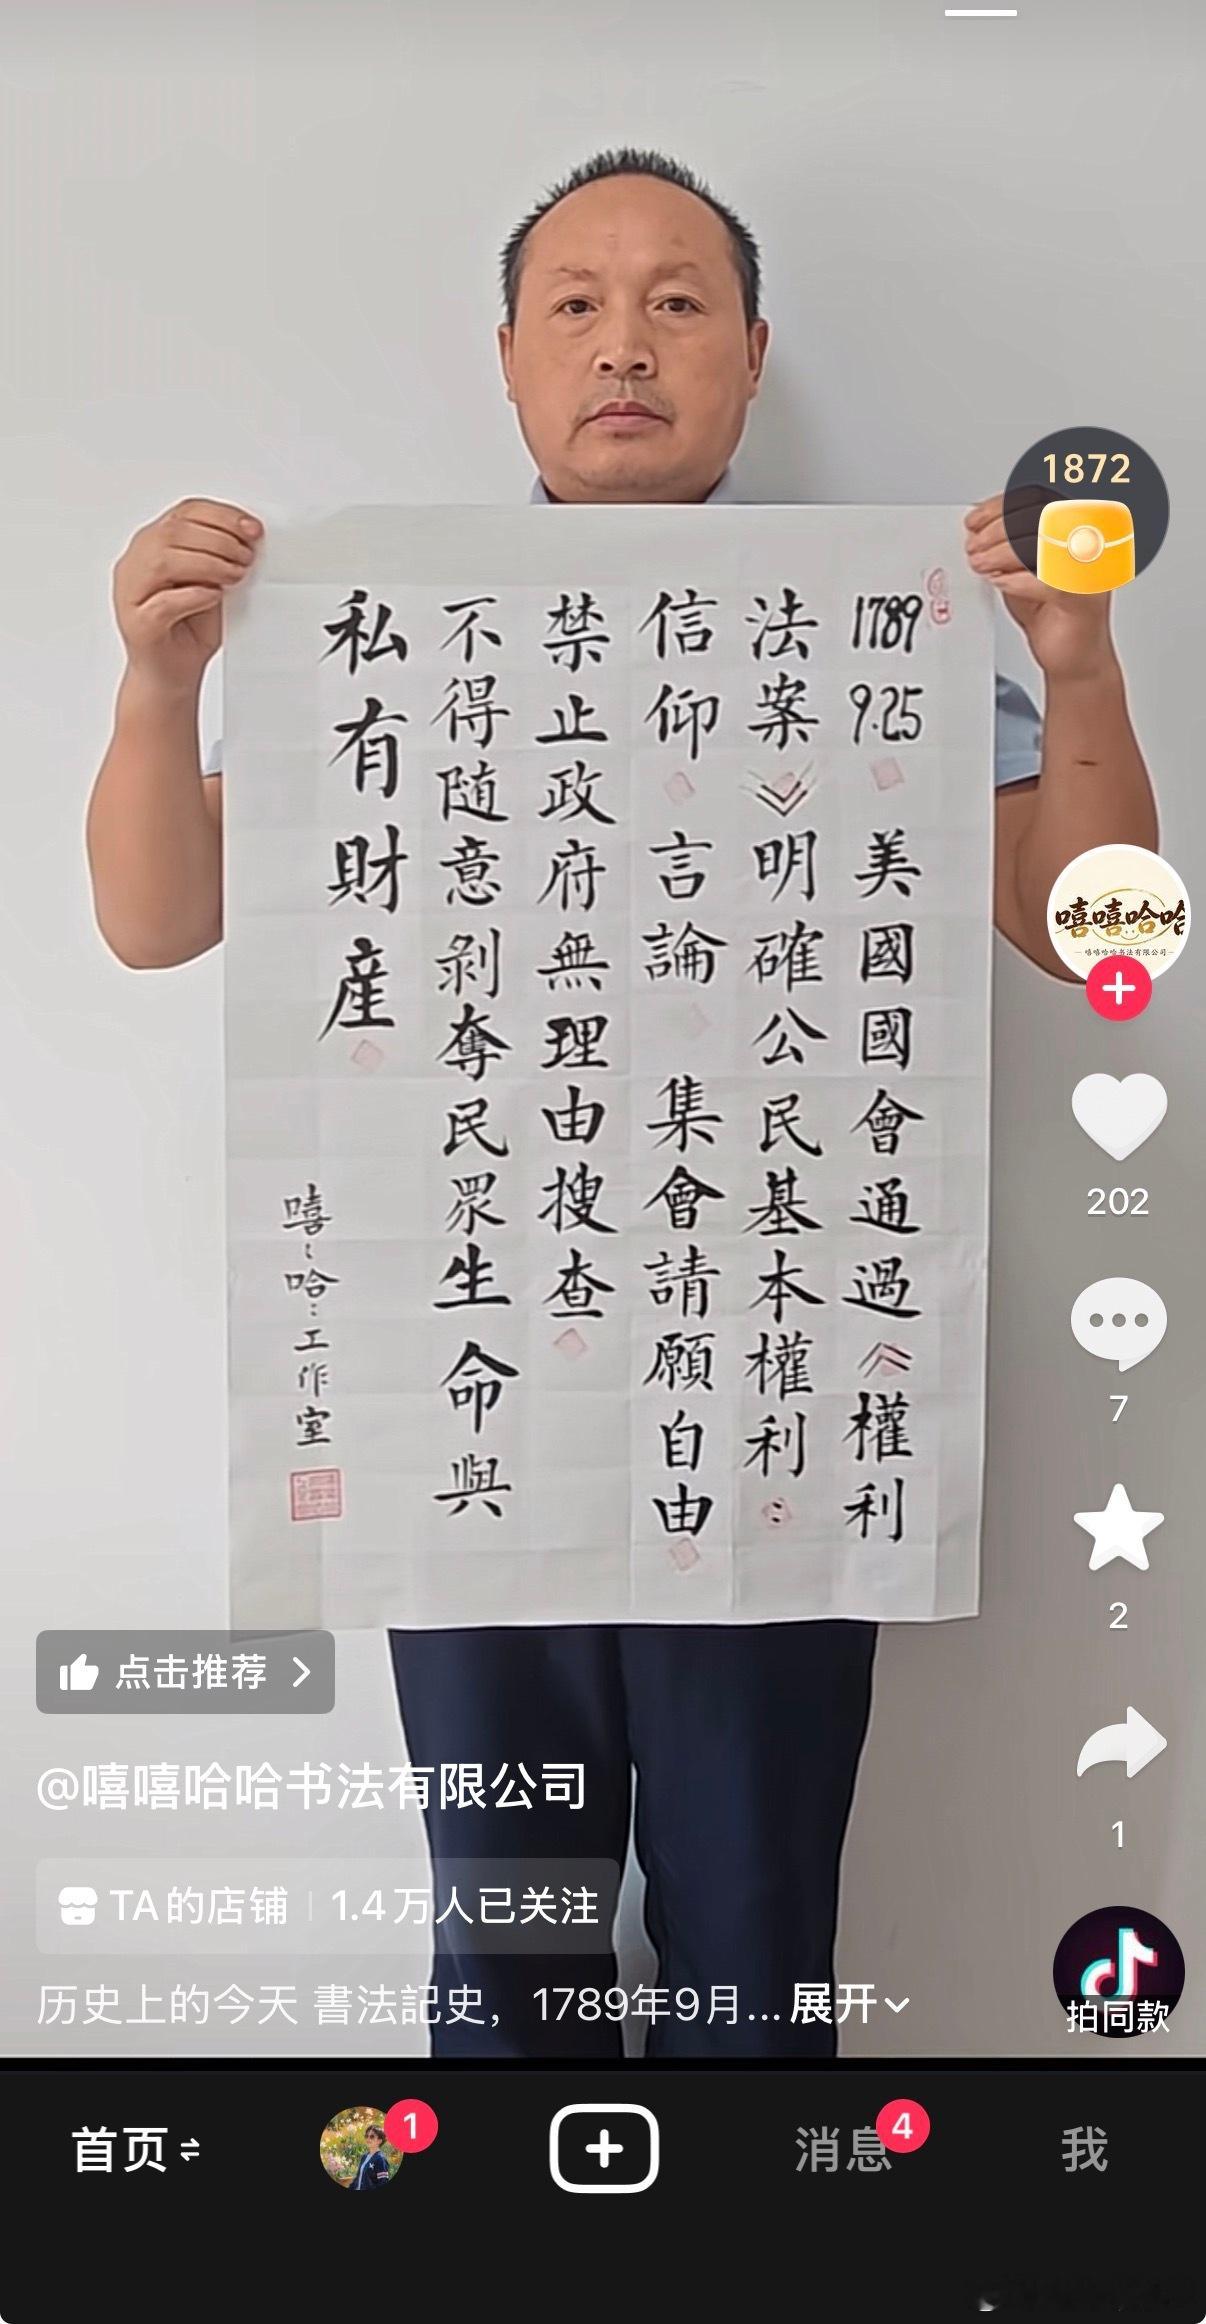 1872
1789 9.25 美國國會通過《權利
法案》明確公民基本權利：
信仰 言論 集會請願自由
禁止政府無理由搜查
不得隨意剝奪民眾生命與
私有財產
嘻〻哈〻工作室
嘻嘻哈哈
嘻嘻哈哈书法有限公司
202
7
2
1
点击推荐
@嘻嘻哈哈书法有限公司
TA的店铺 | 1.4万人已关注
历史上的今天 書法記史，1789年9月... 展开
拍同款
首页
1
消息
4
我